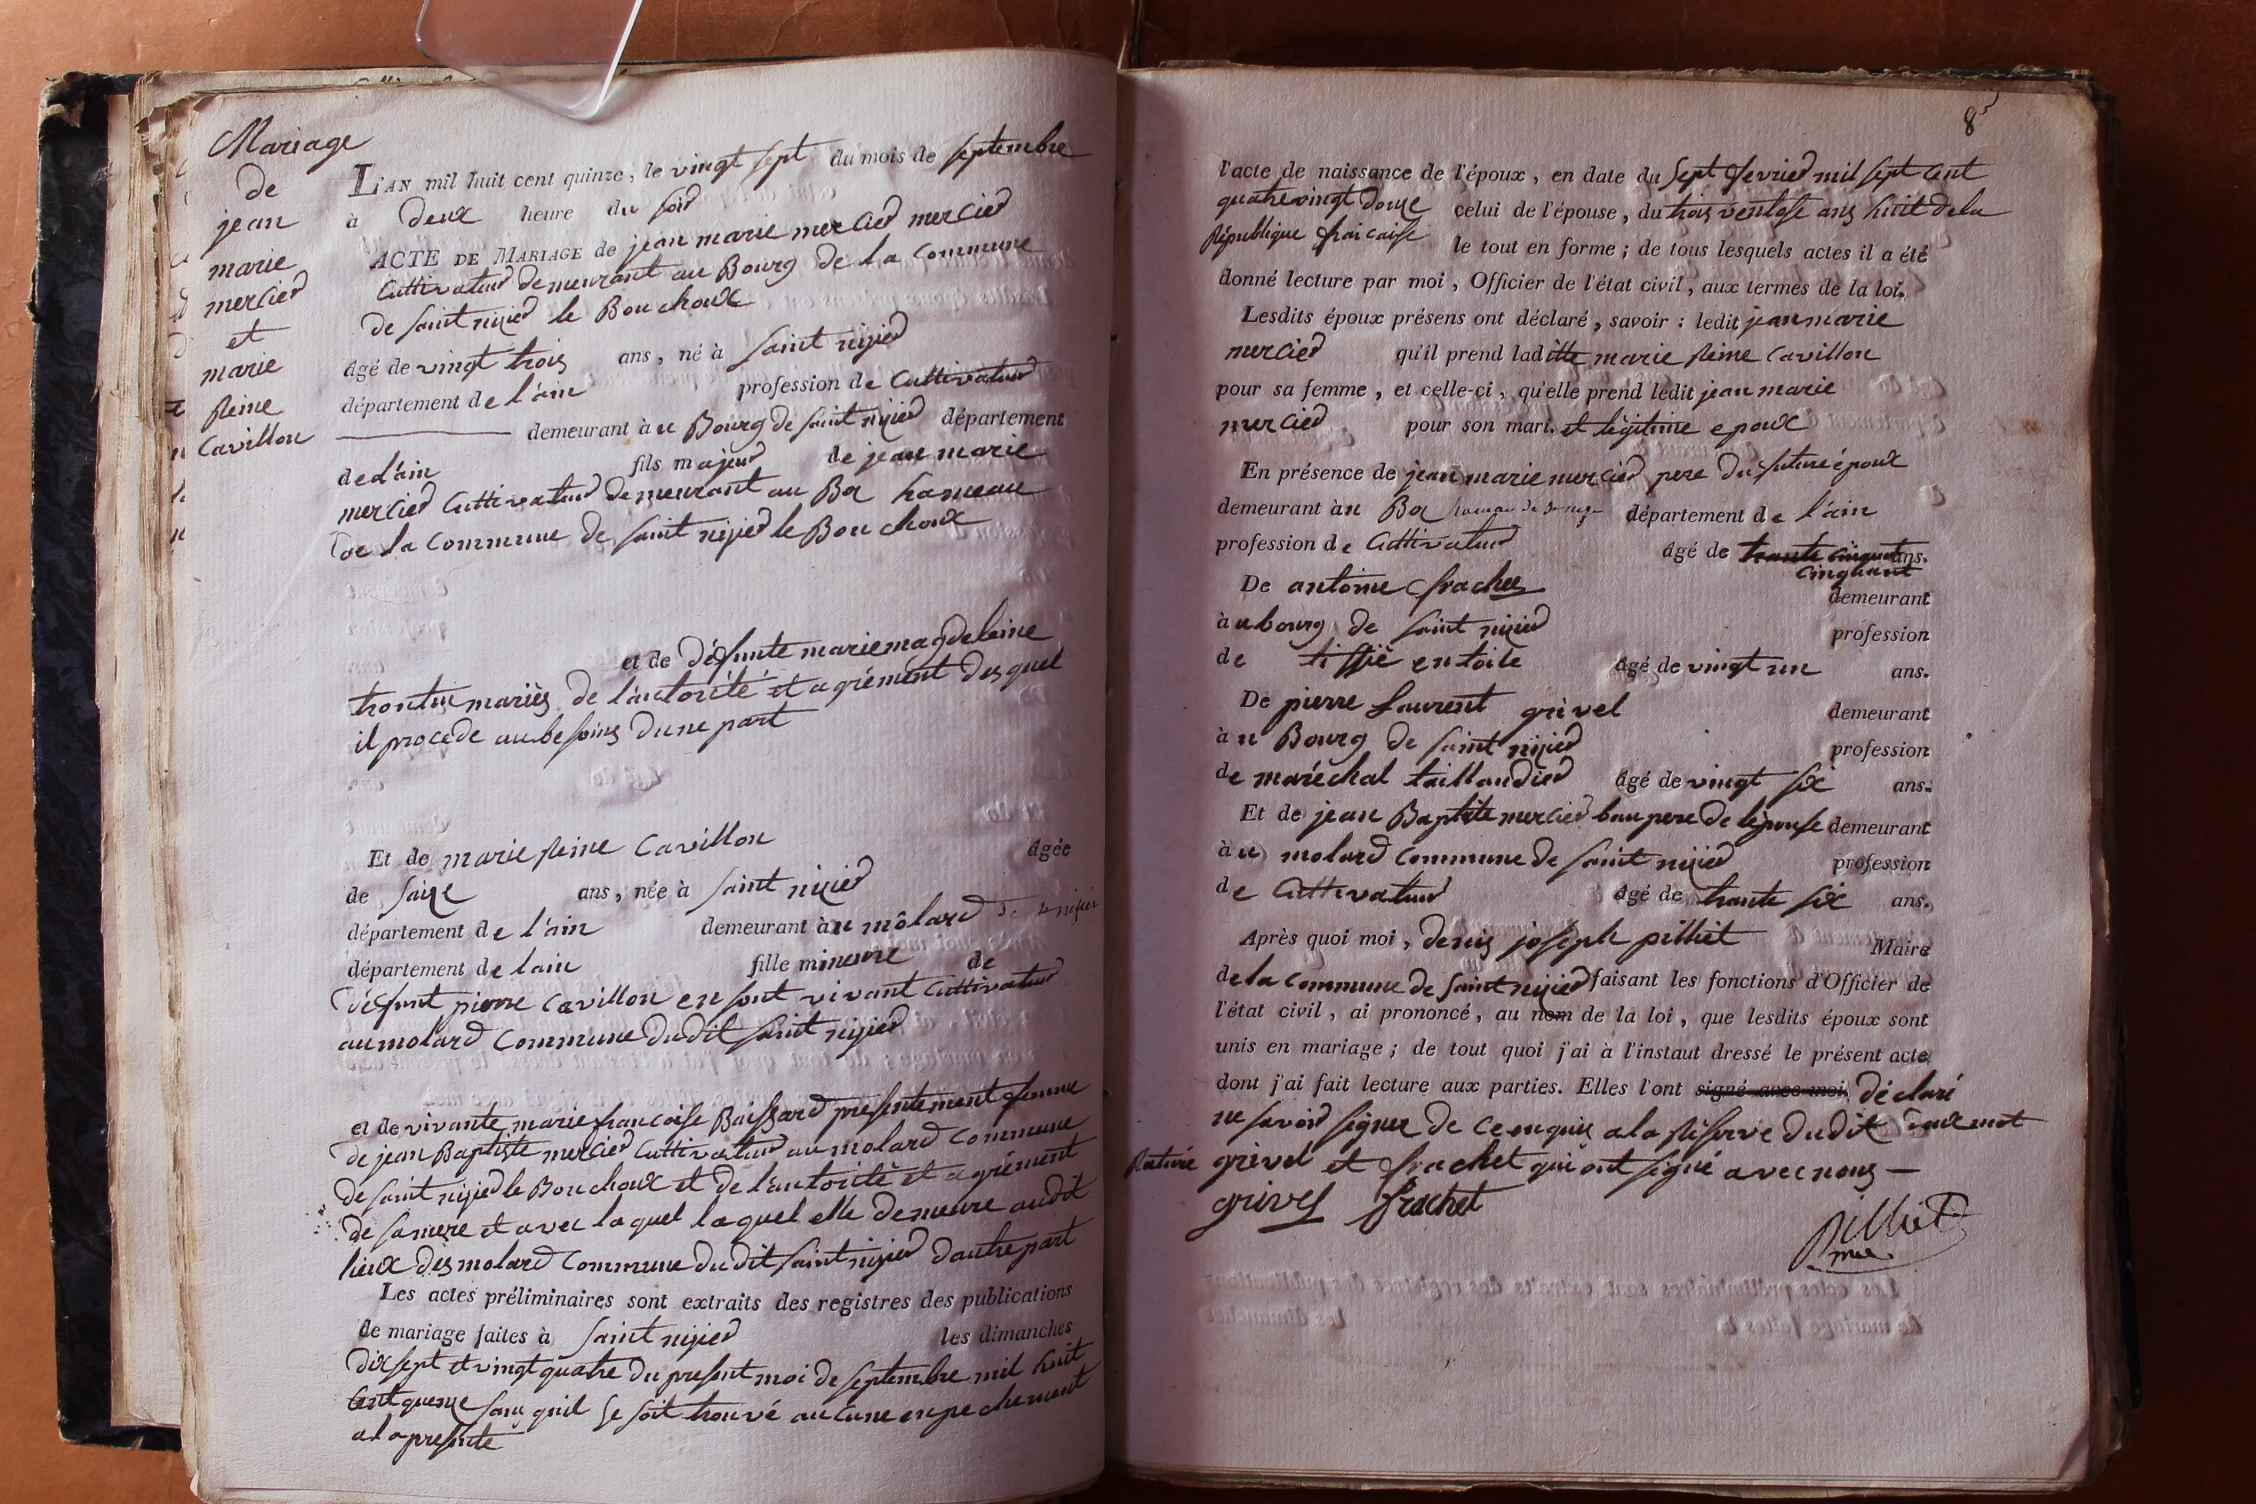 Mariage
de
jean
marie
mercier
et
marie
Reine
Cavillon
L'AN mil huit cent quinze, le vingt sept du mois de septembre
à deux heure du soir
ACTE DE MARIAGE de jean marie mercier mercier
Cultivateur demeurant au Bourg de la Commune
de saint nizier le Bouchoux
âgé de vingt trois ans, né à saint nizier
département de l'ain profession de Cultivateur
demeurant à u Bourg de saint nizier département
de l'ain fils majeur de jean marie
mercier Cultivateur demeurant au Bor hameau
de la Commune de saint nizier le Bouchoux
et de défunte marie magdeleine
trontin mariès de l'autorité et agrément desquel
il procede au besoins dune part
Et de marie Reine Cavillon âgée
de saize ans, née à saint nizier
département de l'ain demeurant à u môlard de St nizier
département de lain fille mineure de
défunt pierre Cavillon en sont vivant Cultivateur
au molard Commune dudit saint nizier
et de vivante marie francoise Buissard presentement femme
de jean Baptiste mercier Cultivateur au molard Commune
de saint nizier le Bouchoux et de l'autoritè et agrément
de sa mere et avec laquel laquel elle demeure audit
lieux des molard Commune dudit saint nizier dautre part
Les actes préliminaires sont extraits des registres des publications
de mariage faites à saint nizier les dimanches
dix sept et vingt quatre du present moi de septembre mil huit
Cent quenze sans quil se soit trouvé aucune enpechement
a la presente
8
l'acte de naissance de l'époux, en date du sept fevrier mil sept cent
quatre vingt douze celui de l'épouse, du trois ventose ans huit de la
République fraicaise le tout en forme; de tous lesquels actes il a été
donné lecture par moi, Officier de l'état civil, aux termes de la loi.
Lesdits époux présens ont déclaré, savoir: ledit jean marie
mercier qu'il prend laditte marie Reine Cavillon
pour sa femme, et celle-ci, qu'elle prend ledit jean marie
mercier pour son mari. et légitime epoux
En présence de jean marie mercier pere du future époux
demeurant àu Bor hameau de St nizier département de l'ain
profession de Cultivateur âgé de trante cinquat ans.
Cinquant
De antoine frachet demeurant
à u bourg de saint nizier profession
de tissië en toile âgé de vingt un ans.
De pierre Laurent grivel demeurant
à u Bourg de saint nizier profession
de maréchal taillandier âgé de vingt six ans.
Et de jean Baptiste mercier beau pere de lépouse demeurant
à u molard Commune de saint nizier profession
de Cultivateur âgé de trante six ans.
Après quoi moi, denis joseph pilliet Maire
de la Commune de saint nizier faisant les fonctions d'Officier de
l'état civil, ai prononcé, au nom de la loi, que lesdits époux sont
unis en mariage; de tout quoi j'ai à l'instaut dressé le présent acte
dont j'ai fait lecture aux parties. Elles l'ont signé avec moi, déclaré
ne savoir signer de ce enquis a la Réserve dudit deux mot
Raturé grivel et frachet qui ont signé avec nous —
grivel frachet
Pilliet
mre